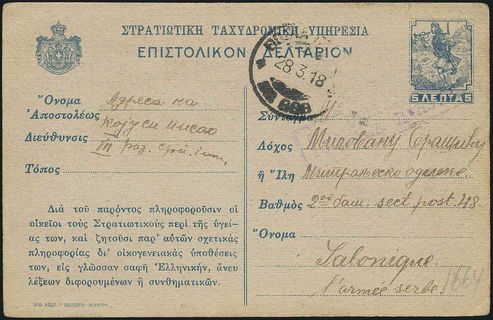 ΣΤΡΑΤΙΩΤΙΚΗ ΤΑΧΥΔΡΟΜΙΚΗ ΥΠΗΡΕΣΙΑ
ΕΠΙΣΤΟΛΙΚΟΝ ΔΕΛΤΑΡΙΟΝ
28.3.18
5 ΛΕΠΤΑ 5
Ὄνομα
Ἀποστολέως
Διεύθυνσις
Τόπος
Адреса на
којусе писао
III
Σύνταγμα
Λόχος Миловану
ἢ Ἴλη Митраљеско оделење
Βαθμὸς 2ᵒᵐ бат. sect. post. 418
Ὄνομα
Salonique
l'armée serbe.
1664
Διὰ τοῦ παρόντος πληροφοροῦσιν οἱ
οἰκεῖοι τοὺς Στρατιωτικοὺς περὶ τῆς ὑγεί-
ας των, καὶ ζητοῦσι παρ' αὐτῶν σχετικὰς
πληροφορίας δι' οἰκογενειακὰς ὑποθέσεις
των, εἰς γλῶσσαν σαφῆ Ἑλληνικήν, ἄνευ
λέξεων διφορουμένων ἢ συνθηματικῶν.